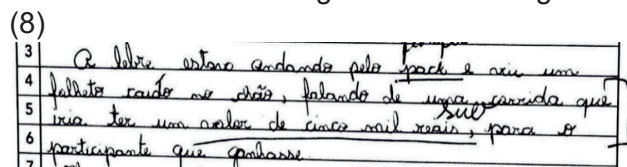 (8)
3 A lebre estava andando pelo park e viu um
4 folheto caído no chão, falando de uma corrida que
5 iria ter um valor de cinco mil reais, para o
6 participante que ganhasse.
7